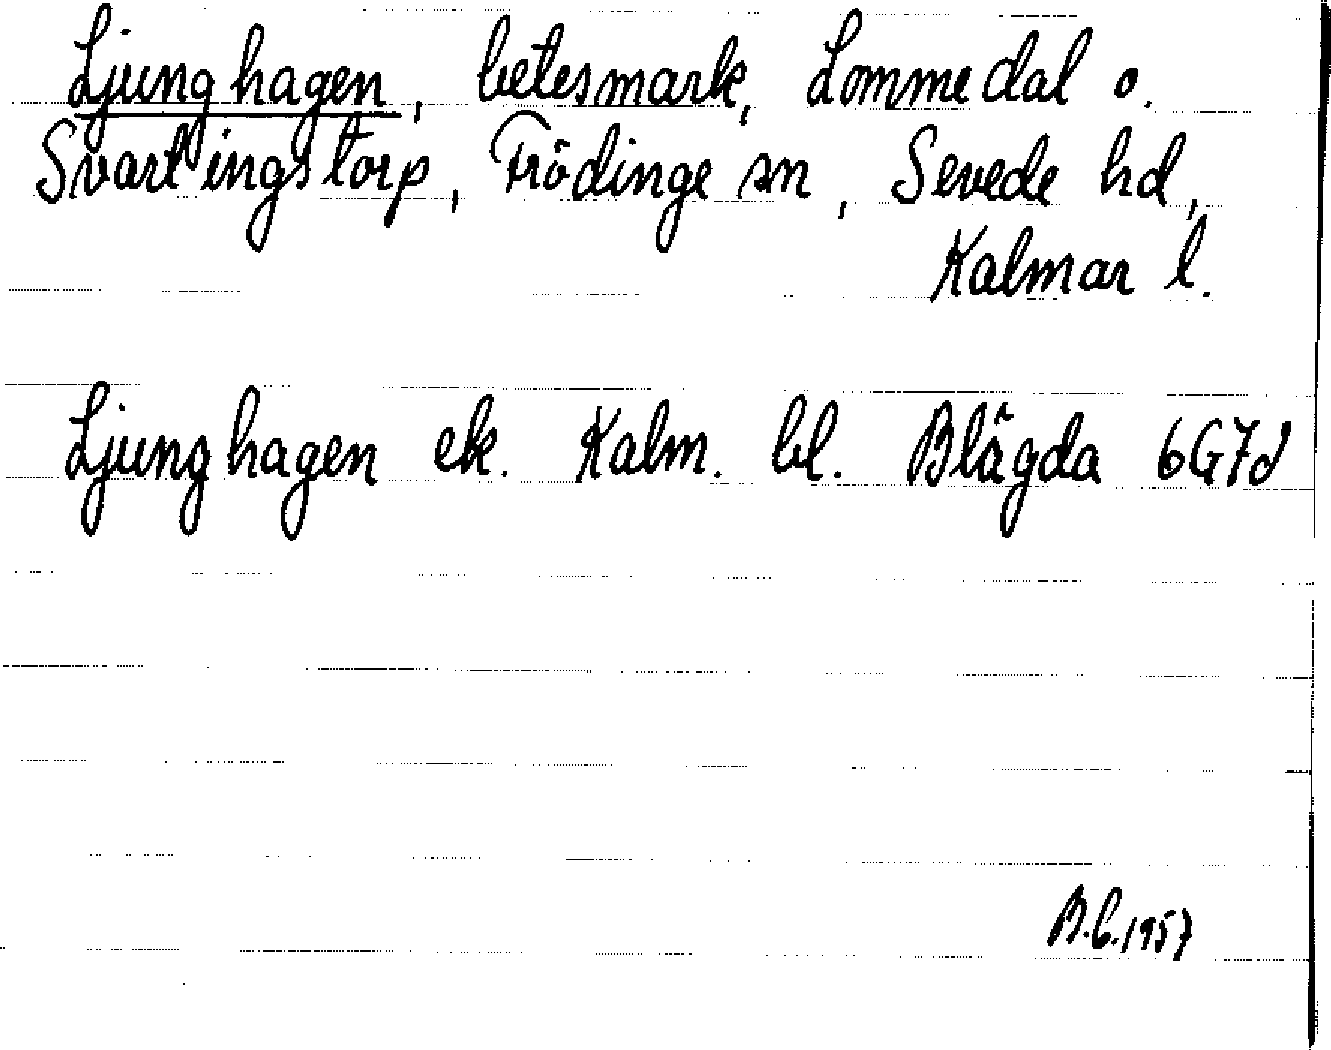 Ljunghagen, betesmark, Lommedal o.
Svartingstorp, Frödinge sn, Sevede hd,
Kalmar l.
Ljunghagen ek. Kalm. bl. Blägda 6G7d
B.C.1957